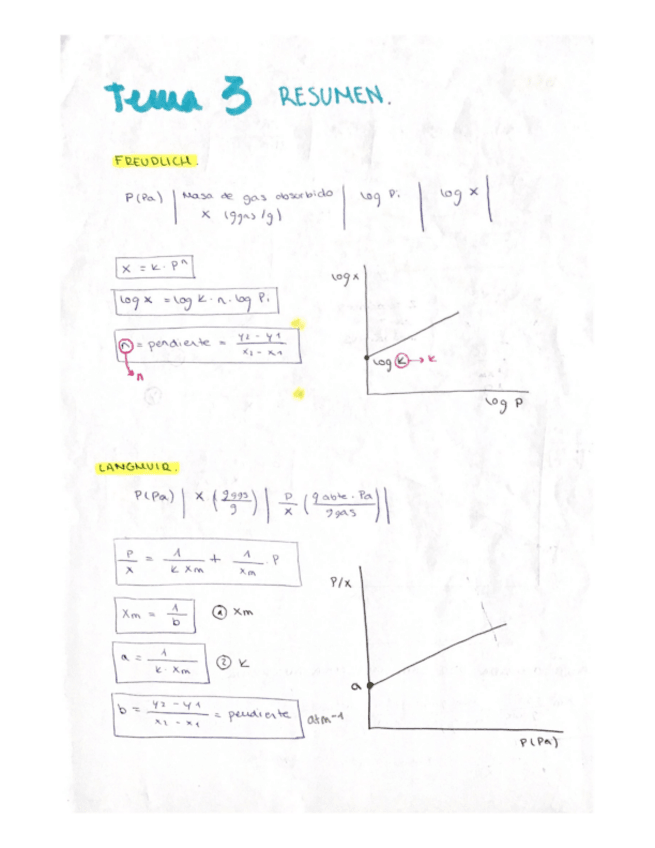 Tema 3 RESUMEN.
FREUDLICH.
P(Pa) | Masa de gas absorbido | log Pi | log x |
x (ggas/g)
x = k · Pⁿ
log x = log k · n · log Pi
n = pendiente = y2 - y1 / x2 - x1
n
log x
log k → k
log P
LANGMUIR.
P(Pa) | x (ggas/g) | P/x (g abte · Pa / ggas) |
P/x = 1/k xm + 1/xm · P
xm = 1/b ① xm
a = 1/k · xm ② k
b = y2 - y1 / x2 - x1 = pendiente atm⁻¹
P/x
a
P(Pa)